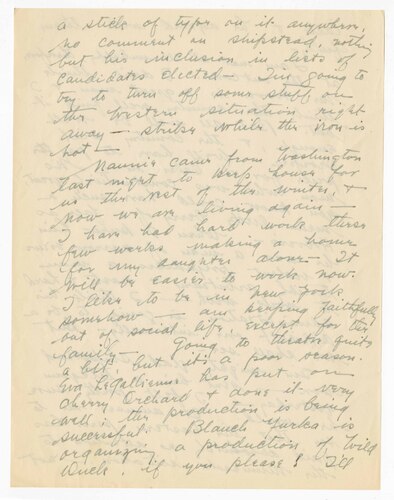 a stick of type on it anywhere,
no comment on Shipstead, nothing
but his inclusion in lists of
candidates elected — I'm going to
try to turn off some stuff on
the Western situation right
away — strike while the iron is
hot —
Nannie came from Washington
last night to keep house for
us the rest of the winter, &
now we are living again —
I have had hard work these
few weeks making a home
for my daughter alone — It
will be easier to work now.
I like to be in New York
somehow — am keeping faithfully
out of social life, except for the
family — Going to theatre quite
a bit, but it's a poor season.
Eva LeGallienne has put on
Cherry Orchard & done it very
well; the production is being
successful. Blanch Yurka is
organizing a production of Wild
Duck, if you please! I'll